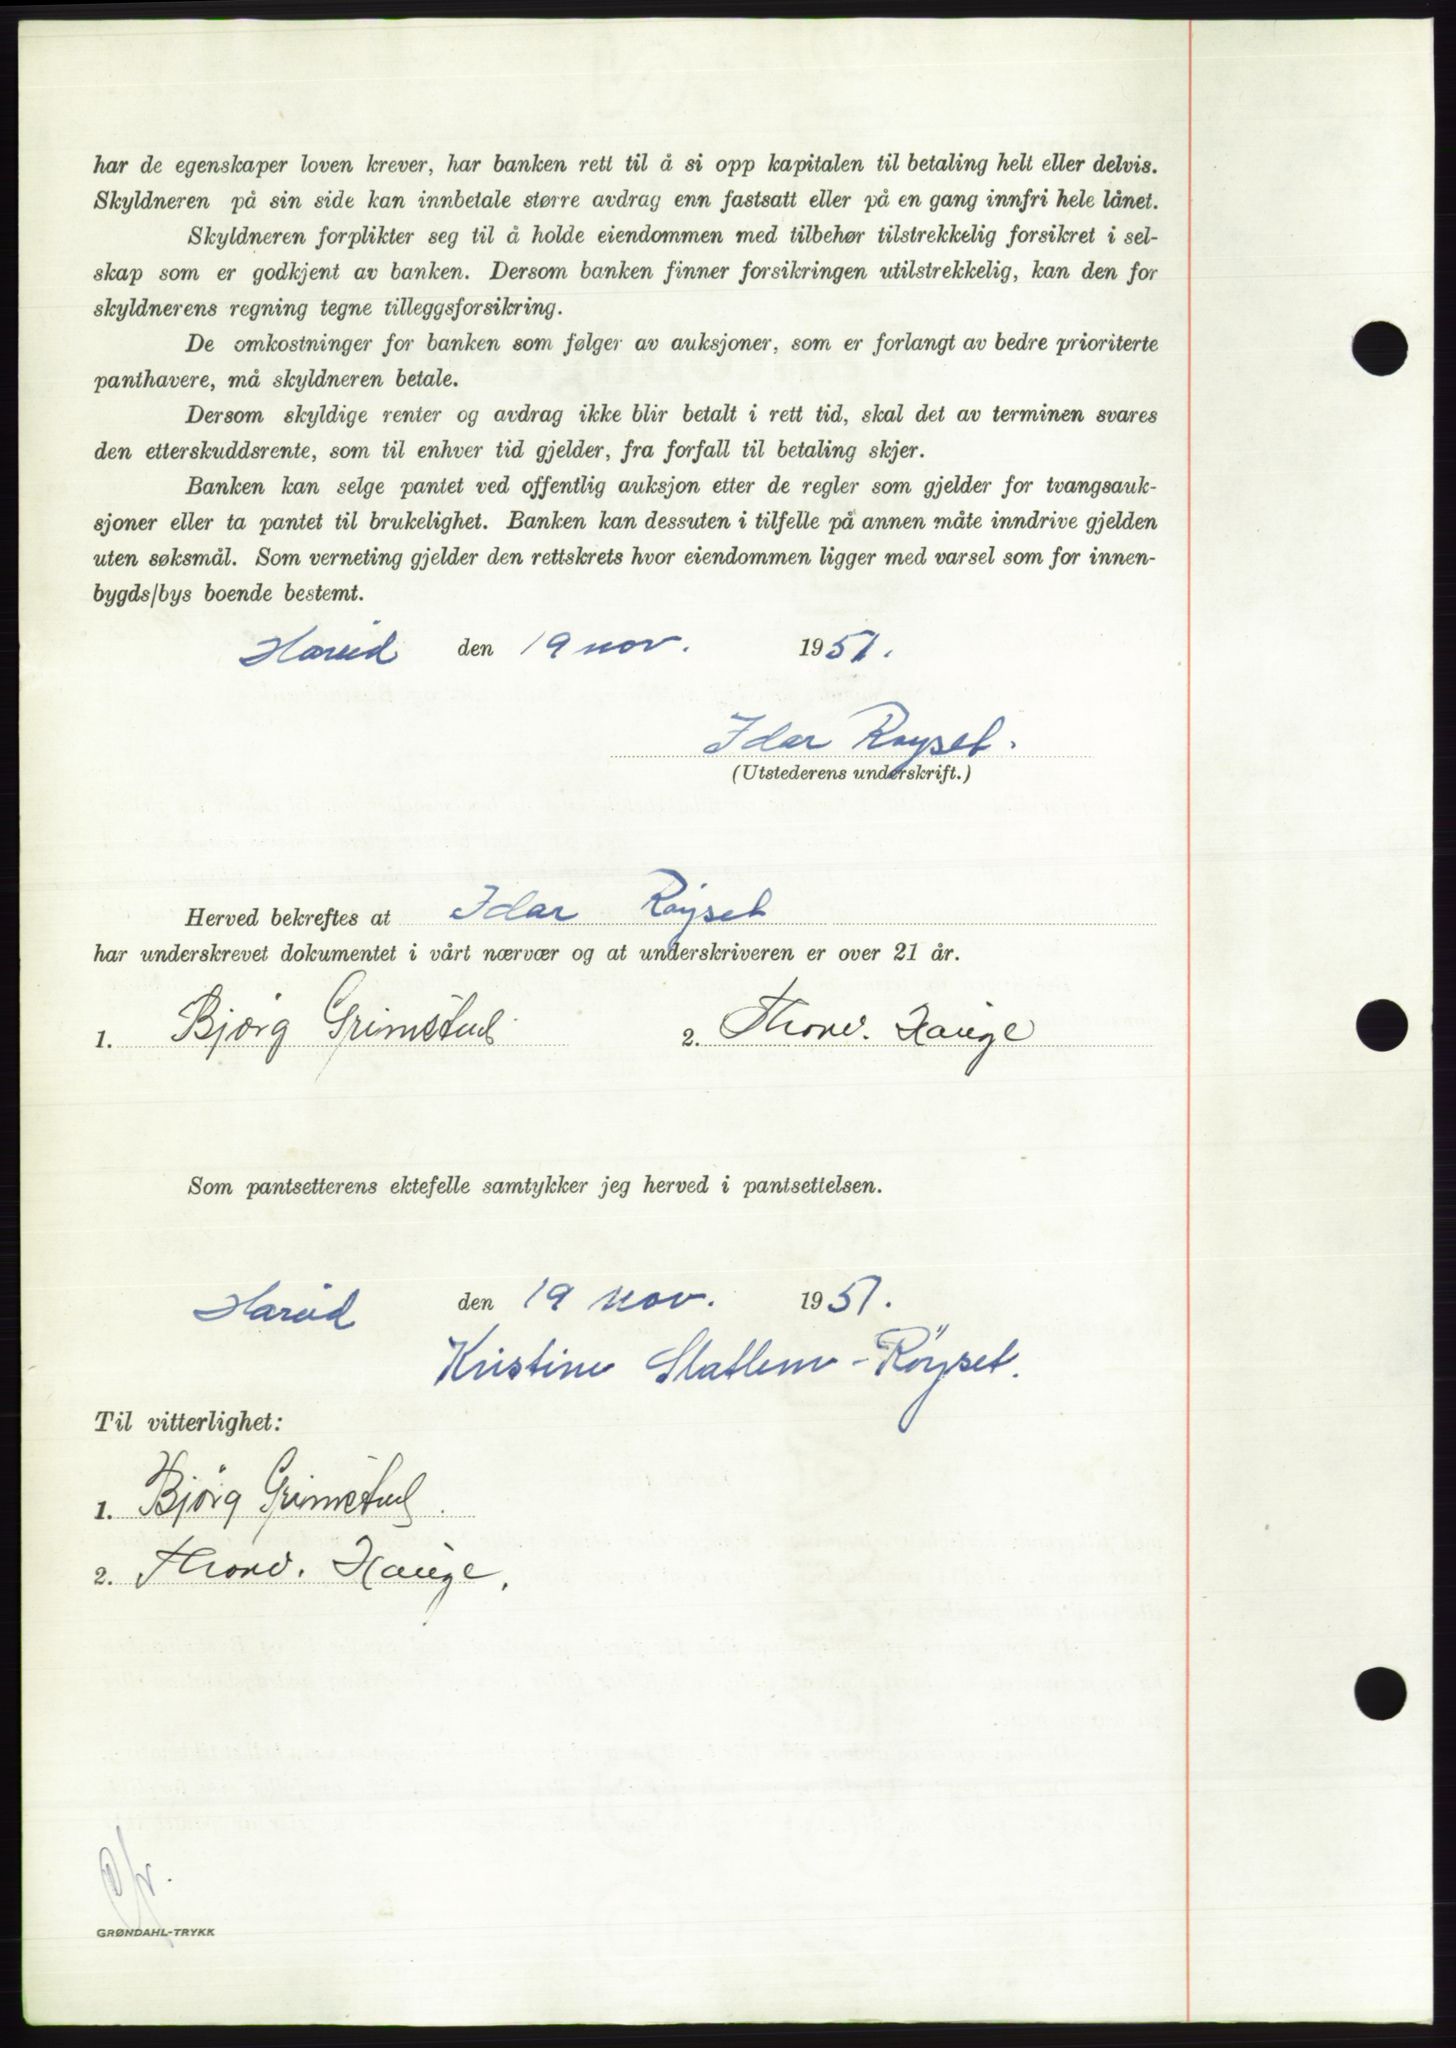 har de egenskaper loven krever, har banken rett til å si opp kapitalen til betaling helt eller delvis.
Skyldneren på sin side kan innbetale større avdrag enn fastsatt eller på en gang innfri hele lånet.
Skyldneren forplikter seg til å holde eiendommen med tilbehør tilstrekkelig forsikret i sel-
skap som er godkjent av banken. Dersom banken finner forsikringen utilstrekkelig, kan den for
skyldnerens regning tegne tilleggsforsikring.
De omkostninger for banken som følger av auksjoner, som er forlangt av bedre prioriterte
panthavere, må skyldneren betale.
Dersom skyldige renter og avdrag ikke blir betalt i rett tid, skal det av terminen svares
den etterskuddsrente, som til enhver tid gjelder, fra forfall til betaling skjer.
Banken kan selge pantet ved offentlig auksjon etter de regler som gjelder for tvangsauk-
sjoner eller ta pantet til brukelighet. Banken kan dessuten i tilfelle på annen måte inndrive gjelden
uten søksmål. Som verneting gjelder den rettskrets hvor eiendommen ligger med varsel som for innen-
bygds/bys boende bestemt.
Hareid den 19 nov. 1951.
Idar Røyset.
(Utstederens underskrift.)
Herved bekreftes at Idar Røyset
har underskrevet dokumentet i vårt nærvær og at underskriveren er over 21 år.
1. Bjørg Grimstad 2. Thorv. Hauge
Som pantsetterens ektefelle samtykker jeg herved i pantsettelsen.
Hareid den 19 nov. 1951.
Kristine Slatlem-Röyset.
Til vitterlighet:
1. Bjørg Grimstad.
2. Thorv. Hauge.
GRØNDAHL-TRYKK